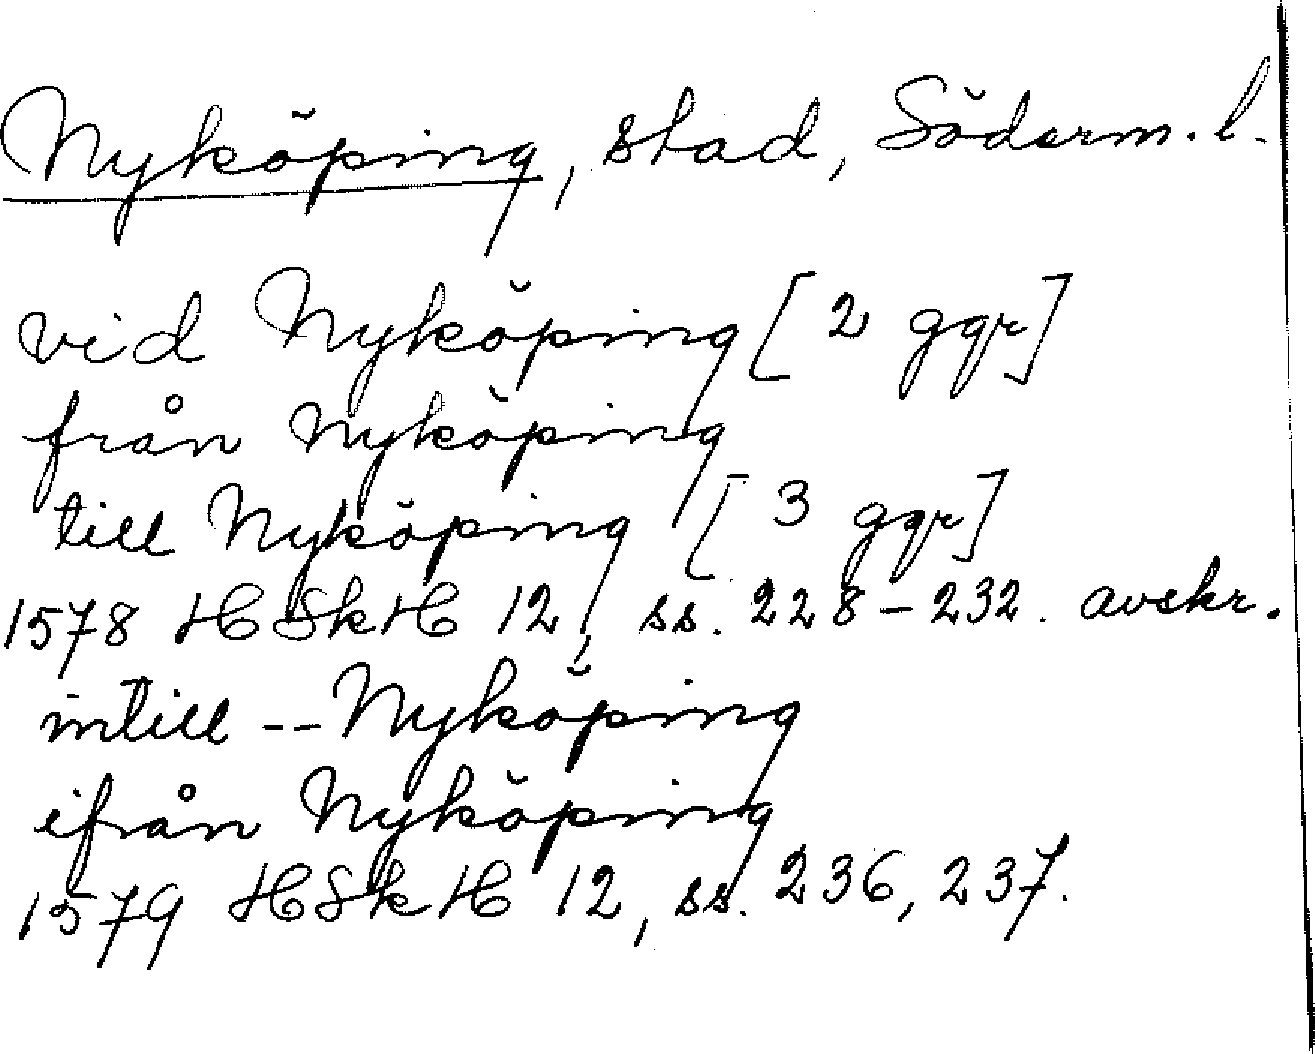 Nyköping, stad, Söderm. l.
vid Nyköping [2 ggr]
från Nyköping
till Nyköping [3 ggr]
1578 HSkH 12, ss. 228-232. avskr.
intill -- Nyköping
ifrån Nyköping
1579 HSkH 12, ss. 236, 237.